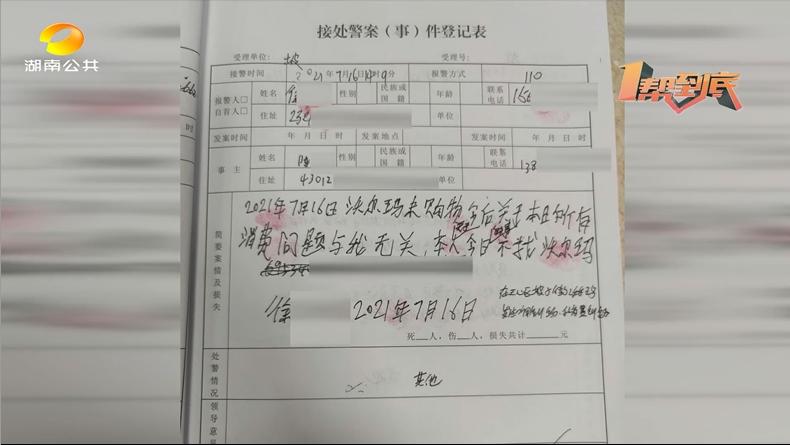 湖南公共
1帮到底
接处警案（事）件登记表
受理单位：坡 受理号：
接警时间 2021年7月16日 时 分 报警方式 110
报警人□ 自首人□ 姓名 徐 性别 民族或国籍 年龄 联系电话 156
住址 232 单位
发案时间 年 月 日 时 发案地点 发案时间 年 月 日 时
事主 姓名 陆 性别 民族或国籍 年龄 联系电话 138
住址 43012 单位
简要案情及损失
2021年7月16日沃尔玛来购物今后关于本日所有
消费问题与我无关，本人今日不找沃尔玛
徐 2021年7月16日
死 人，伤 人，损失共计 元
处警情况 其他
领导意见